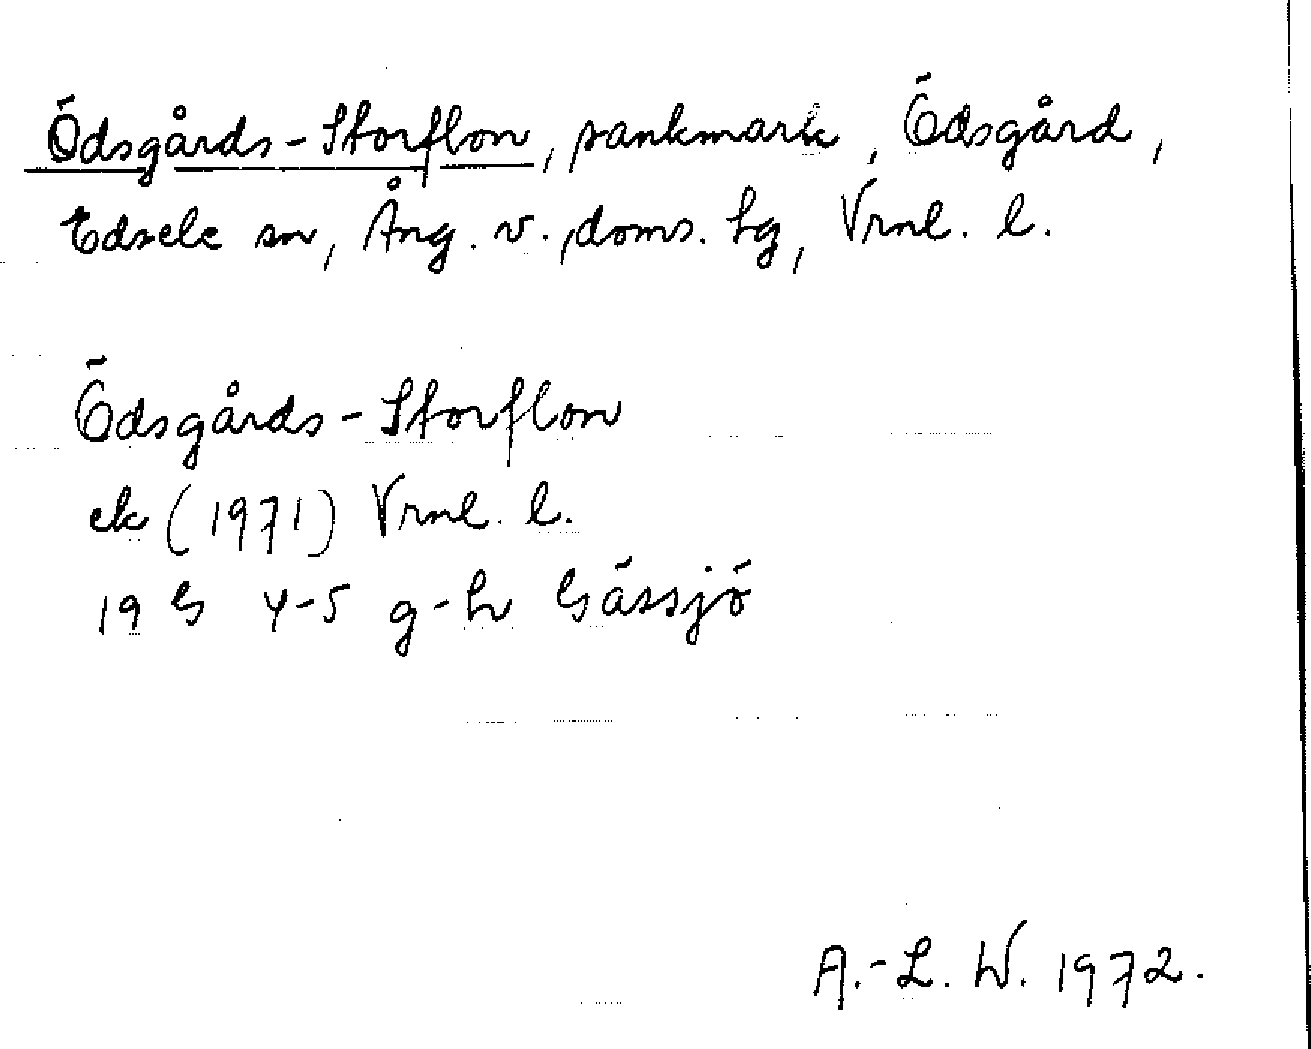 Ödsgårds-Storflon, sankmark, Ödsgård,
Edsele sn, Ång. v., doms. hg, Vrnl. l.
Ödsgårds-Storflon
ek (1971) Vrnl. l.
19 G 4-5 g-h Gässjö
A.-L. W. 1972.